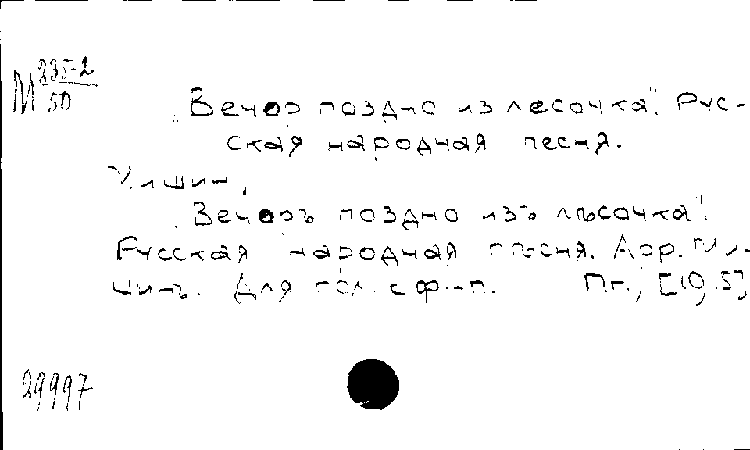 М 235-2/50
„Вечор поздно из лесочка". Рус-
ская народная песня.
„Вечоръ поздно изъ лѣсочка".
Русская народная пѣсня. Аор.
шинъ. Для гол. с ф.-п. Пг.,
29997